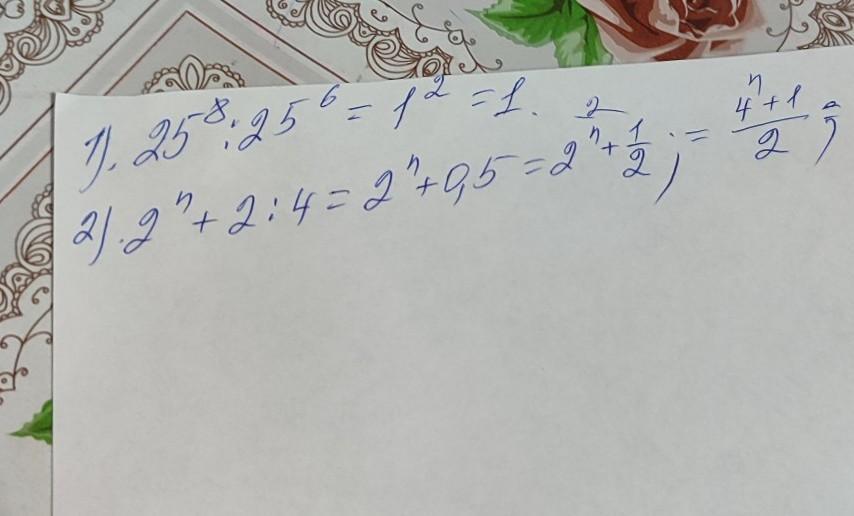 1). 25⁸ : 25⁶ = 1² = 1.
2). 2ⁿ + 2 : 4 = 2ⁿ + 0,5 = 2ⁿ + 1/2 ; = (4ⁿ + 1)/2 ;